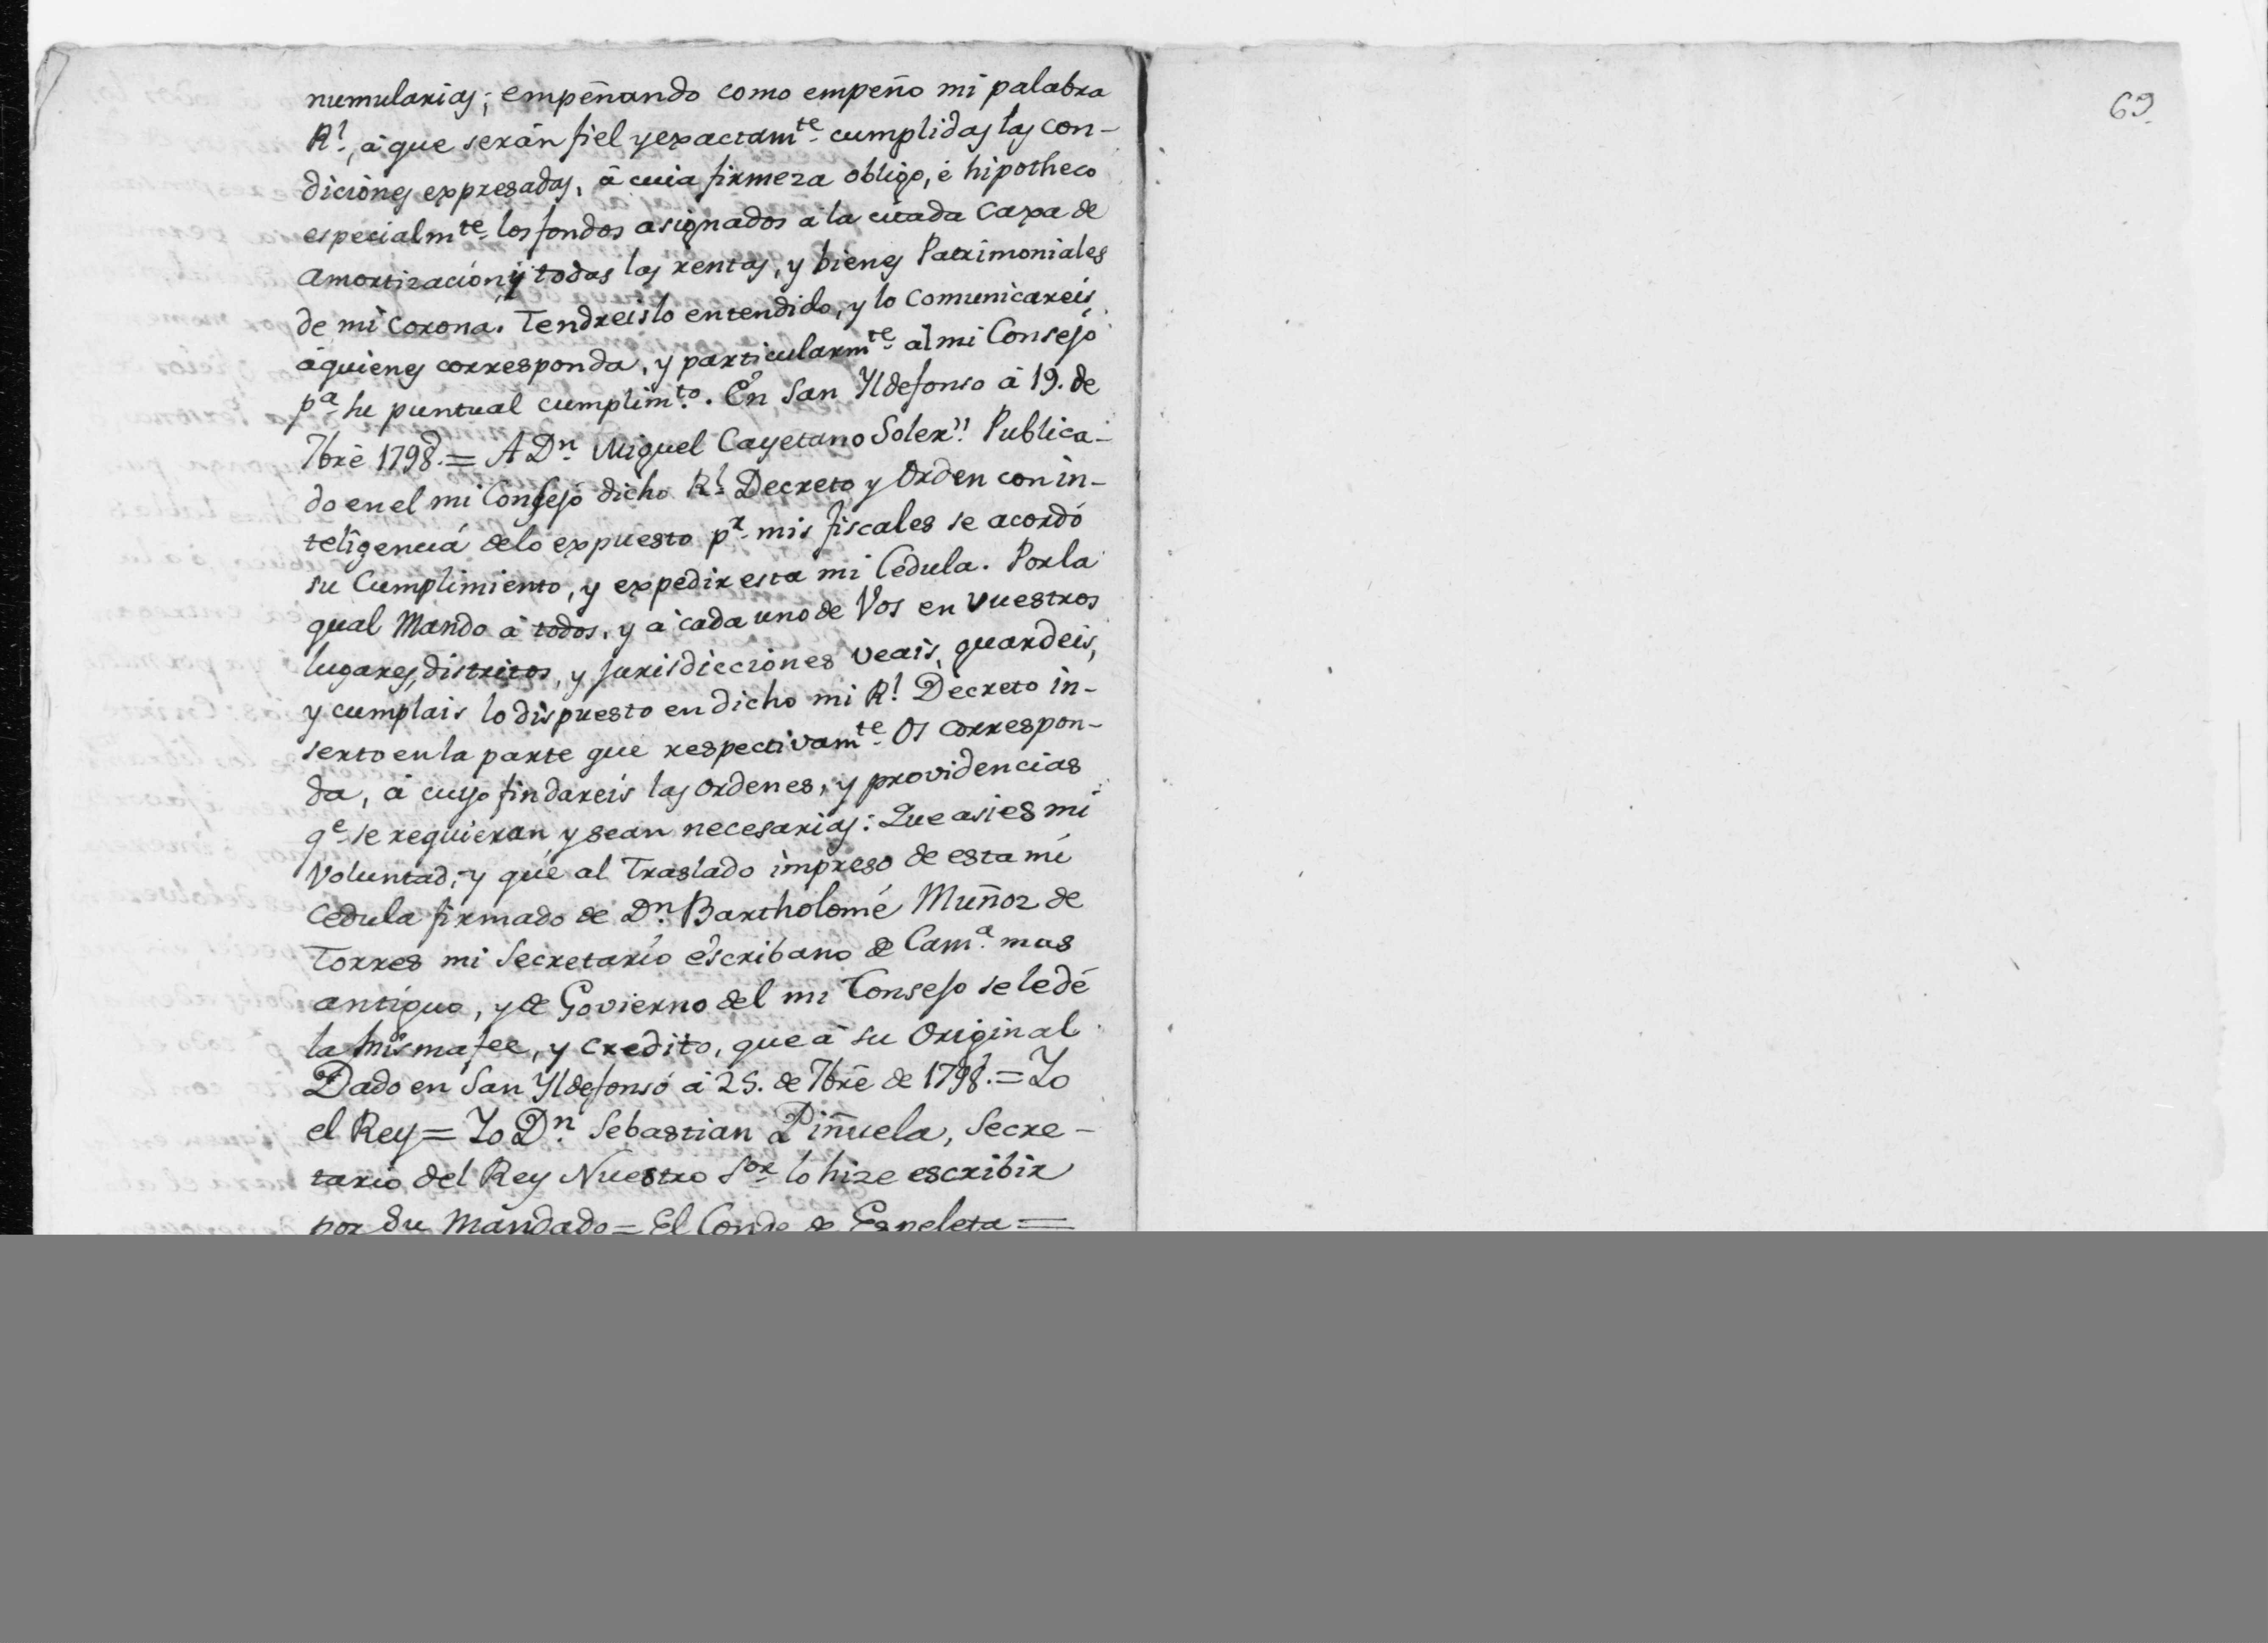 numularias; empeñando como empeño mi palabra
Rl, á que serán fiel y exactamte cumplidas las con-
diciones expresadas, á cuia firmeza obligo, é hipotheco
especialmte los fondos asignados a la citada Caxa de
Amortizacion, y todas las rentas, y bienes Patrimoniales
de mi Corona. Tendreislo entendido, y lo Comunicareis
á quienes corresponda, y particularmte al mi Consejo
pa su puntual cumplimto. En San Yldefonso á 19. de
7bre 1798. = A Dn Miguel Cayetano Soler" Publica-
do en el mi Consejo dicho Rl Decreto y Orden con in-
teligencia delo expuesto pr mis fiscales se acordó
su Cumplimiento, y expedir esta mi Cedula. Por la
qual Mando á todos, y á cada uno de Vos en vuestros
lugares, distritos, y jurisdicciones veais, guardeis,
y cumplais lo dispuesto en dicho mi Rl Decreto in-
serto en la parte que respectivamte Os correspon-
da, á cuyo fin dareis las ordenes, y providencias
qe se requieran, y sean necesarias: Que asi es mi
Voluntad; y que al Traslado impreso de esta mi
Cedula firmado de Dn Bartholomé Muñoz de
Torres mi Secretario escribano de Cama mas
antiguo, y de Govierno del mi Consejo se le dé
la misma fee, y credito, que á su Original
Dado en San Yldefonso á 25. de 7bre de 1798. = Yo
el Rey = Yo Dn Sebastian Piñuela, Secre-
tario del Rey Nuestro Sor lo hize escribir
por Su Mandado = El Conde de Espeleta =
69.